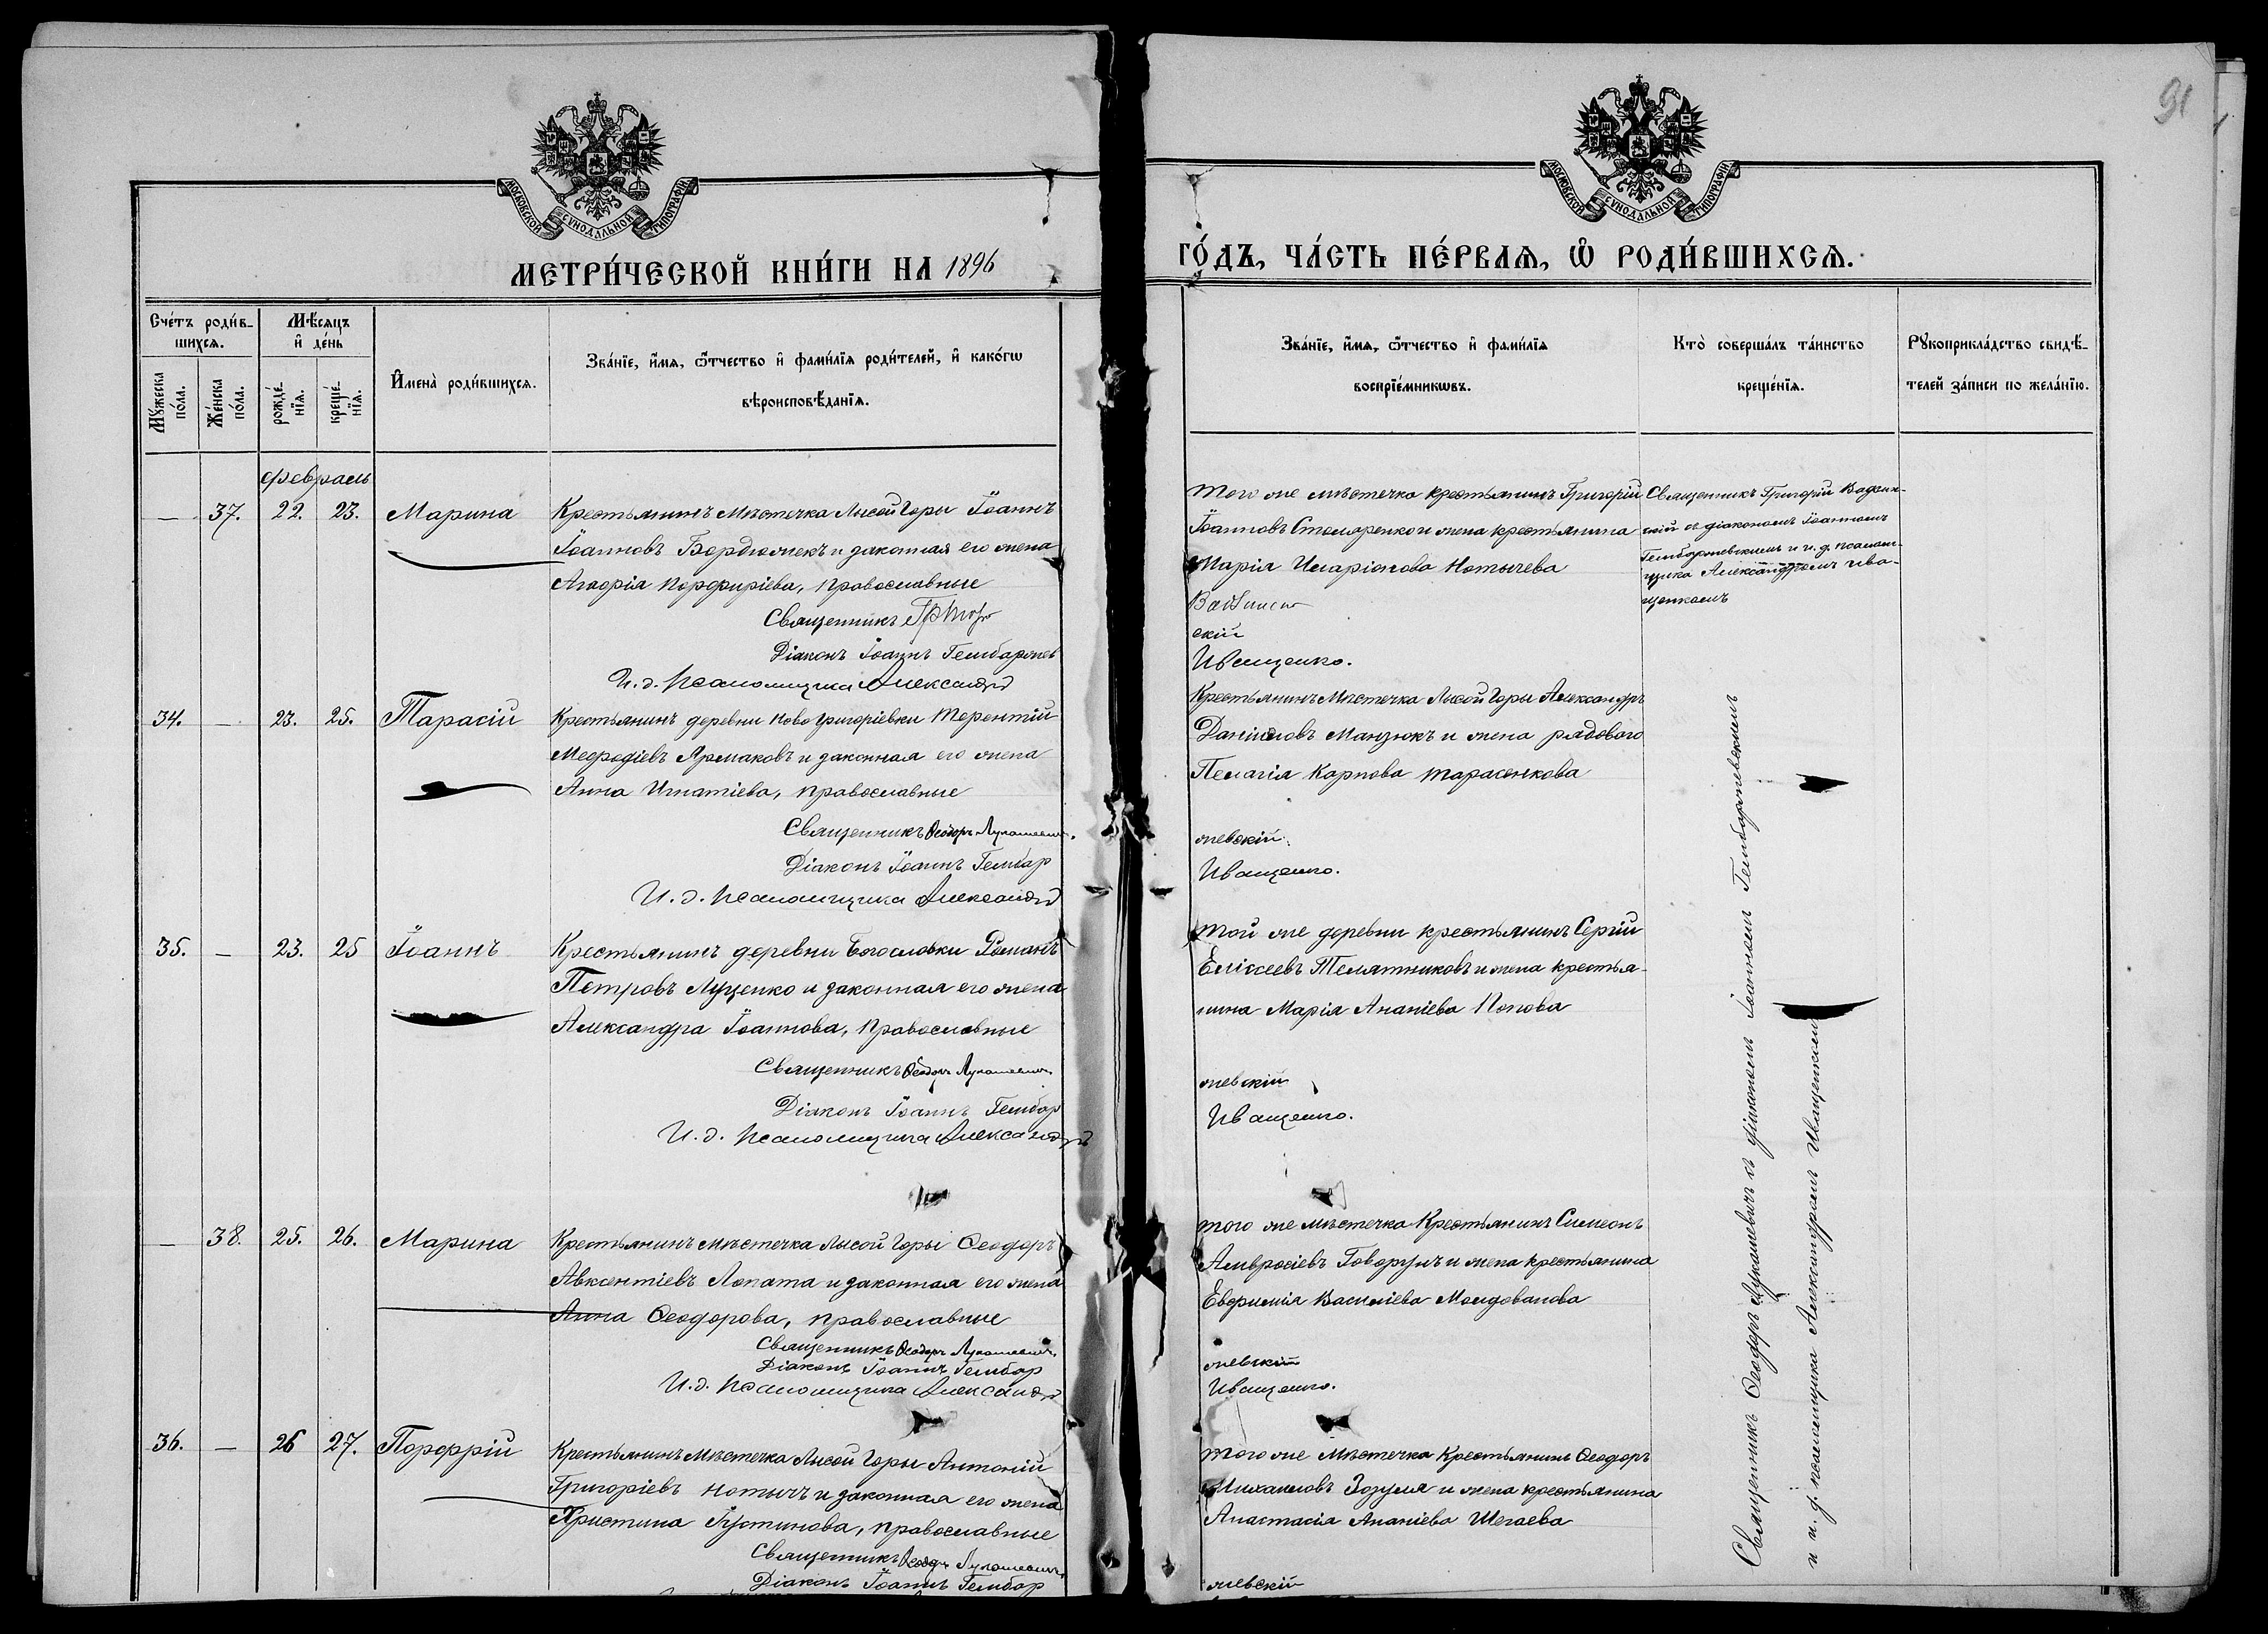 91
МОСКОВСКОЙ СѴНОДАЛЬНОЙ ТИПОГРАФІИ
МОСКОВСКОЙ СѴНОДАЛЬНОЙ ТИПОГРАФІИ
МЕТРИ́ЧЕСКОЙ КНИ́ГИ НА 1896
ГО́ДЪ, ЧА́СТЬ ПЕ́РВАѦ, Ѽ РОДИ́ВШИХСѦ.
Сче́тъ роди́в-
шихсѧ.
Мꙋжеска по́ла.
Же́нска по́ла.
Мѣ́сѧцъ
и҆ де́нь
рожде́-нїѧ.
креще́-нїѧ.
И҆мена̀ роди́вшихсѧ.
Зва́нїе, и҆́мѧ, ѻ҆́тчество и҆ фами́лїѧ роди́телей, и҆ како́гѡ
вѣроисповѣ́данїѧ.
Зва́нїе, и҆́мѧ, ѻ҆́тчество и҆ фами́лїѧ
воспрїе́мникѡвъ.
Кто̀ соверша́лъ та́инство
креще́нїѧ.
Рꙋкоприкла́дство свидѣ́-
телей за́писи по жела́нїю.
февраль
— 37. 22. 23. Марина
Крестьянинъ Мѣстечка Лысой Горы Іоаннъ
Іоанновъ Бордюжекъ и законная его жена
Агафія Порфиріева, православные
Священникъ
Діаконъ Іоаннъ Гембарже
И. д. Псаломщика Александръ
того же мѣстечка крестьянинъ Григорій
Іоанновъ Столяренко и жена крестьянина
Марія Иларіонова Нотычева
скій
Иващенко.
Священникъ Григорій
скій съ діакономъ Іоанномъ
Гембаржевскимъ и и. д. псалом-
щика Александромъ Ива-
щенкомъ
34. — 23. 25. Тарасій
Крестьянинъ деревни Ново Григоріевки Терентій
Мефодіевъ Ярмаковъ и законная его жена
Анна Игнатіева, православные
Священникъ Ѳеодоръ Лукашевичъ.
Діаконъ Іоаннъ Гембар
И. д. Псаломщика Александръ
Крестьянинъ Мѣстечка Лысой Горы Александръ
Даніиловъ Манзюкъ и жена рядового
Пелагія Карпова Тарасенкова
жевскій.
Иващенко.
35. — 23. 25 Іоаннъ
Крестьянинъ деревни Богословки Романъ
Петровъ Луценко и законная его жена
Александра Іоаннова, православные
Священникъ Ѳеодоръ Лукашевичъ
Діаконъ Іоаннъ Гембар
И. д. Псаломщика Александръ
той же деревни крестьянинъ Сергій
Елісеевъ Телятниковъ и жена крестья-
нина Марія Ананіева Попова
жевскій
Иващенко.
— 38. 25. 26. Марина
Крестьянинъ мѣстечка Лысой Горы Ѳеодоръ
Авксентіевъ Лопата и законная его жена
Анна Ѳеодорова, православные
Священникъ Ѳеодоръ Лукашевичъ,
Діаконъ Іоаннъ Гембар
И. д. Псаломщика Александръ
того же мѣстечка Крестьянинъ Симеонъ
Амвросіевъ Говорунъ и жена крестьянина
Евфимія Василіева Молдованова
жевскій
Иващенко.
36. — 26 27. Порфрій
Крестьянинъ Мѣстечка Лысой Горы Антоній
Григоріевъ Нотычъ и законная его жена
Христина Іустинова, православные
Священникъ Ѳеодоръ Лукашевичъ,
Діаконъ Іоаннъ Гембар
того же Мѣстечка Крестьянинъ Ѳеодоръ
Михаиловъ Зозуля и жена крестьянина
Анастасія Ананіева Шегаева
жевскій
Священникъ Ѳеодоръ Лукашевичъ съ діакономъ Іоанномъ Гембаржевскимъ
и и. д. псаломщика Александромъ Иващенкомъ